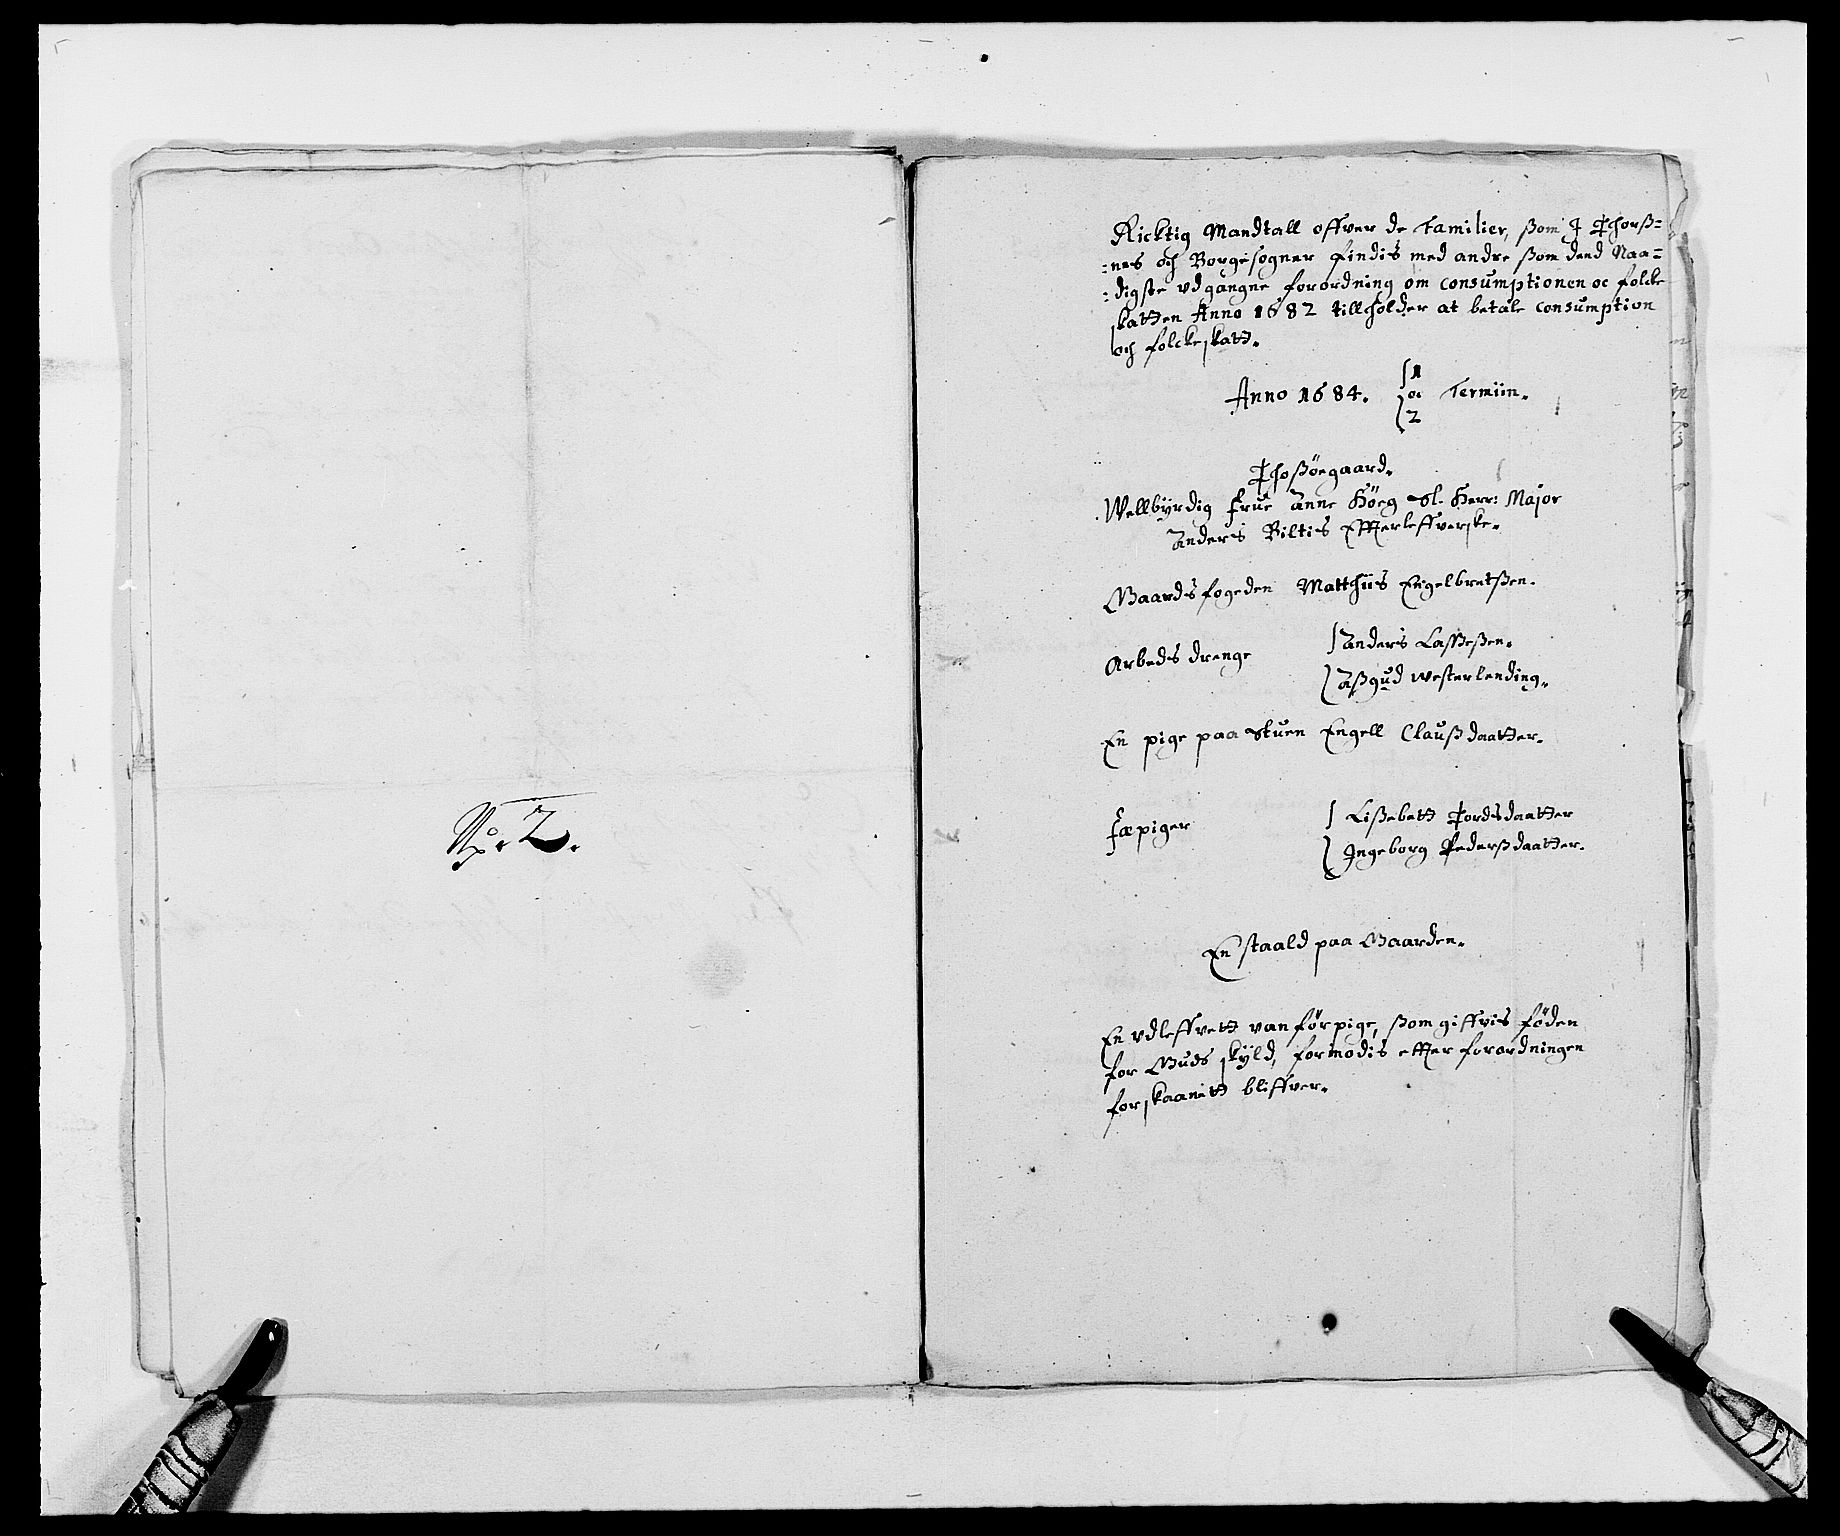 No. 2.
Ricktig Mandtall offver de Familier, ßom J Thorß=
=nes och Borgesogner findis med andre ßom dend Naa=
=digste vdgangne forordning om consumptionen oc folcke
skatten Anno 1682 tillholder at betale consumption
och folckeskatt.
Anno 1684. 1 oc 2 Termiin.
Thoßøegaard.
Wellbyrdig Frue Anne Høeg Sl. Herr: Major
Anders Biltis Effterleffverske.
Gaardsfogeden Matthiis Engelbretßen.
Arbeds drenge Anders Laßeßen.
Aßgud Westerlending.
En pige paa Stuen Engell Claußdaatter.
Fæpiger Lißebett Tordsdaatter
Ingeborg Pederßdaatter.
En staald paa Gaarden.
En vdleffvett vanför pige, ßom giffvis föden
for Guds skyld, formodis effter forordningen
forskaanett bliffver.